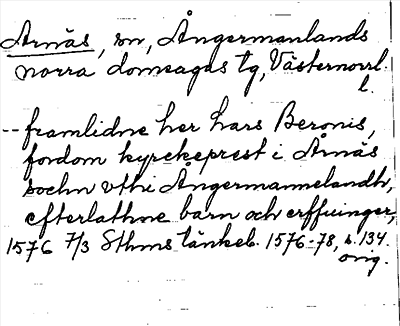 Arnäs, sn, Ångermanlands
norra domsagas tg, Västernorrl.
l.
-- framlidne her Lars Beronis,
fordom kyrckeprest i Årnäs
sochn vthi Ångermannelandh,
efterlathne barn och erffuinger,
1576 7/3 Sthms tänkeb. 1576-78, s. 134.
orig.